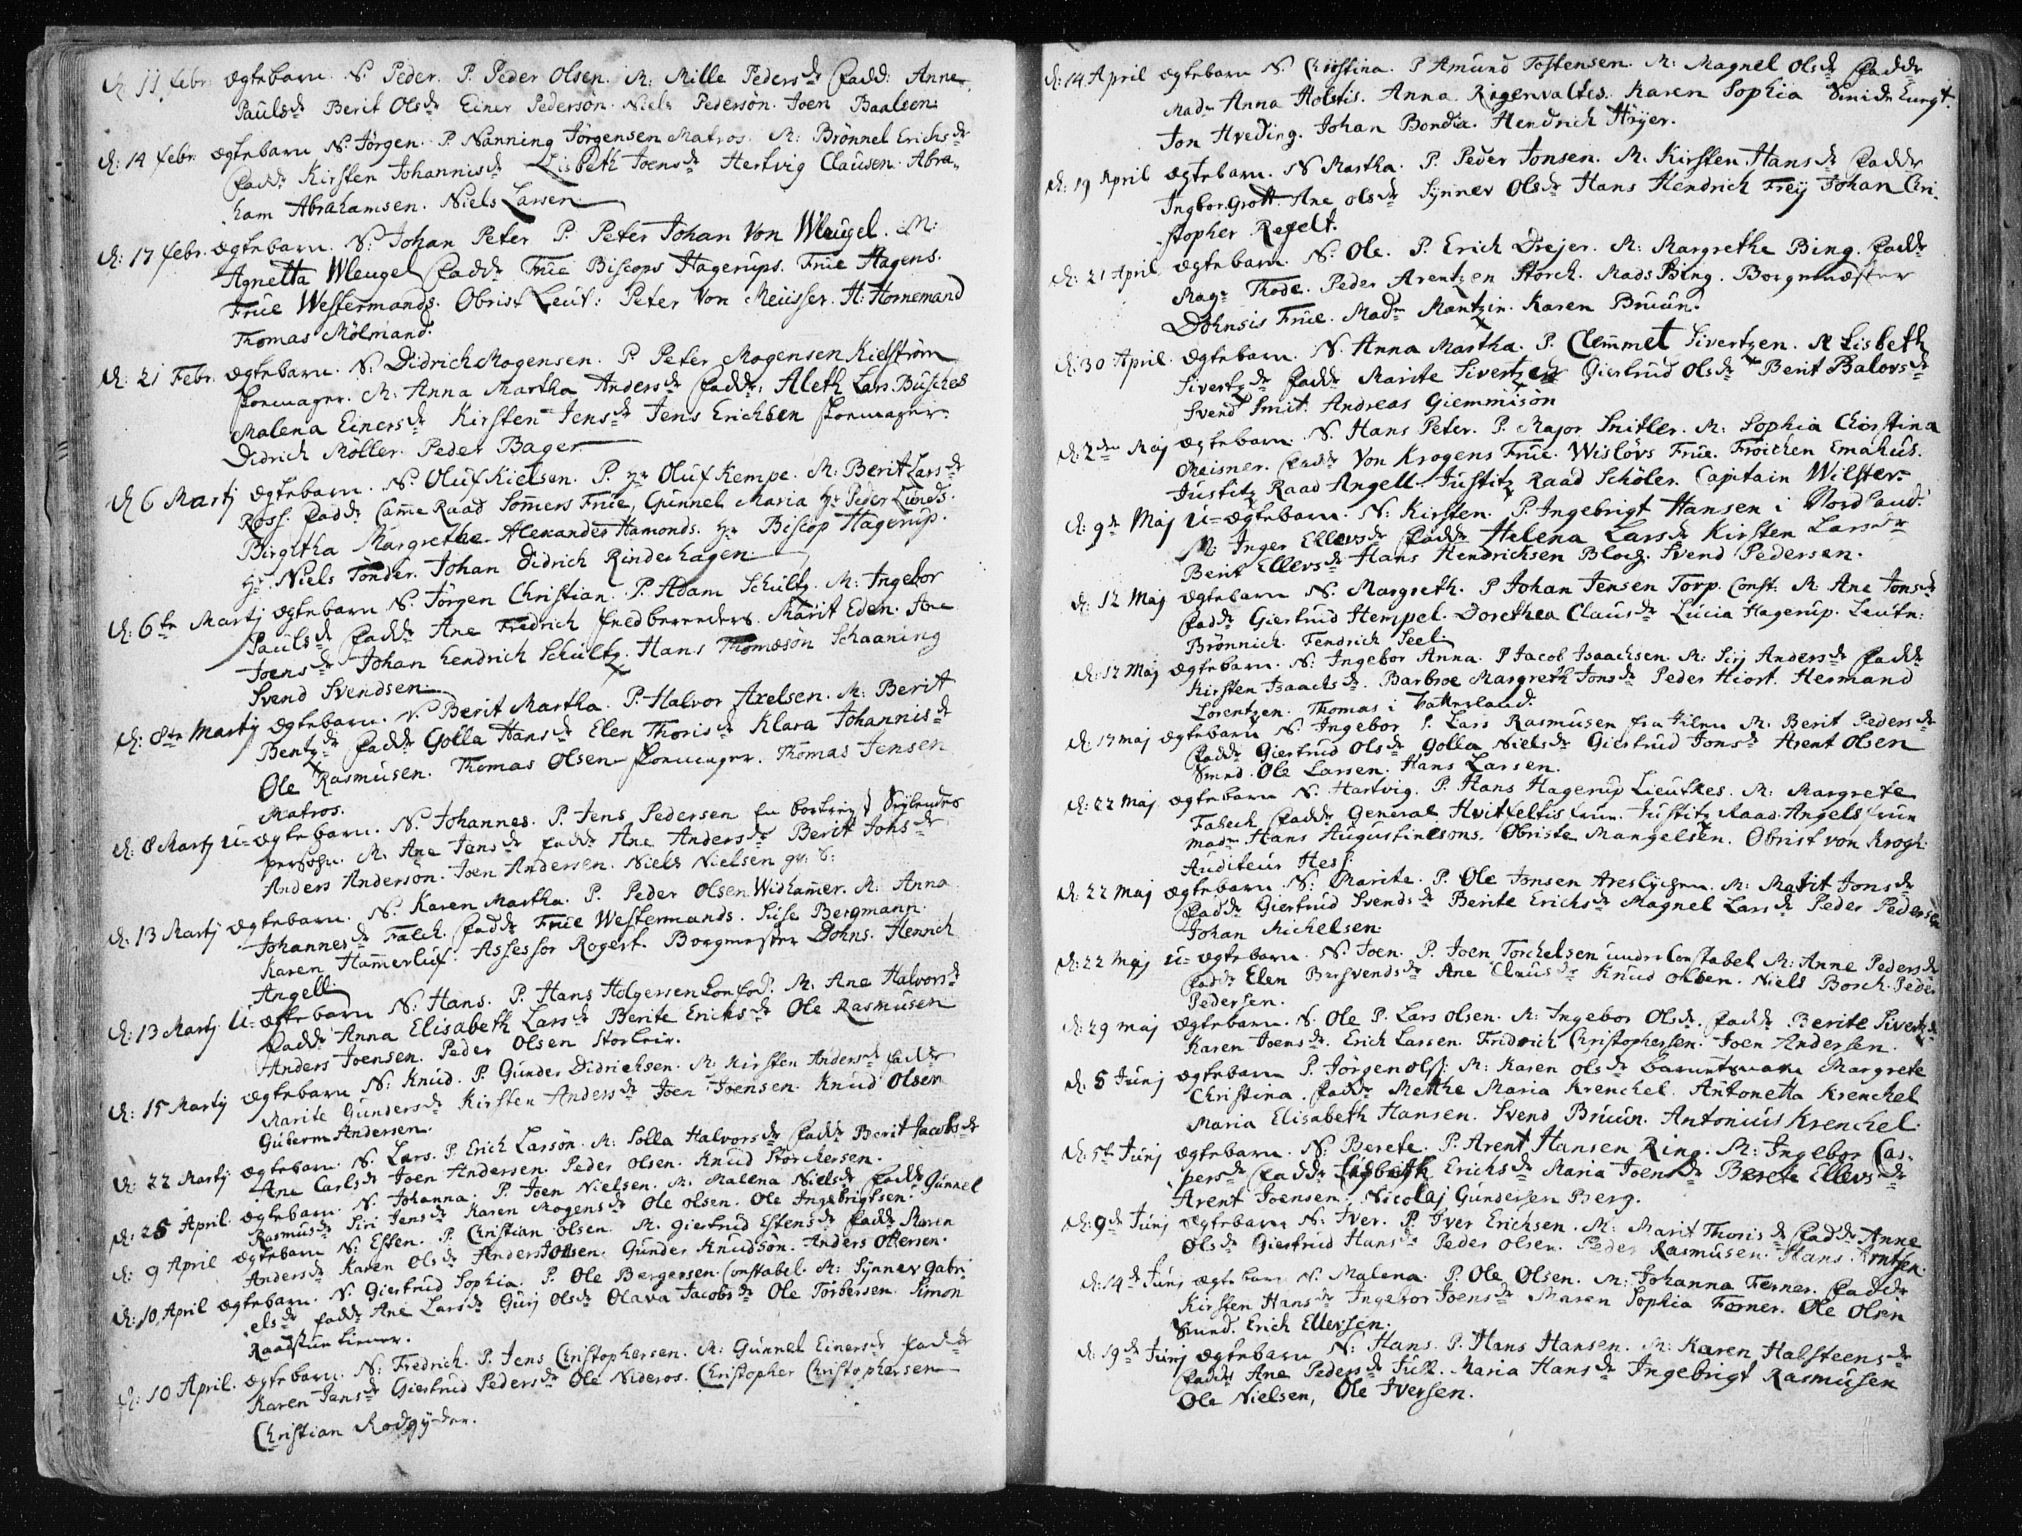 d: 11 febr. ægtebarn. N. Peder. P. Peder Olsen. M: Mille Pedersdr fadd: Anne
Paulsdr Berit Olsdr Einer Pedersøn. Niels Pedersøn. Joen Baalsen.
d: 14 febr. ægtebarn N. Jørgen. P. Nanning Jørgensen Matros. M: Brønnel Erichsdr
faddr Kirsten Johannisdr Lisbeth Joensdr Hertvig Clausen. Abra-
ham Abrahamsen. Niels Larsen
d: 17 febr. ægtebarn. N: Johan Peter P. Peter Johan Von Wleugel. M:
Agnetta Wleugel faddr Frue Biscops Hagerups. Frue Hagens.
Frue Westermands. Obrist Leut: Peter Von Meusser. H: Hornemand
Thomas Mölmand.
d: 21 Febr. ægtebarn. N. Didrich Mogensen. P. Peter Mogensen Kielstrøm
M. Anna Martha Andersdr faddr: Aleth Lars Busches
Malena Einersdr Kirsten Jensdr Jens Erichsen
Didrich Møller. Peder Bager
d 6 Martj ægtebarn. N. Oluf Kielsen. P. Hr Oluf Kempe. M: Berit Larsdr
Ross. faddr Camme Raad Sommers Frue, Gunnel Maria Hr Peder Lunds.
Birgitha Margrethe Alexander Hamonds. Hr Biscop Hagerup.
Hr. Niels Tønder. Johan Didrich Rinderhagen.
d: 6te Martj ægtebarn N. Jørgen Christian. P. Adam Schultz. M: Ingebor
Paulsdr faddr Ane Fredrich Marit Eden. Ane
Joensdr Johan Hendrich Schultz. Hans Thomæsøn Schaaning
Svend Svendsen
d: 8te Martij ægtebarn. N. Berit Martha. P. Halvor Axelsen. M: Berit
Bentzdr faddr Golla Hansdr Elen Thorisdr Klara Johannisdr
Ole Rasmusen. Thomas Olsen Thomas Jensen
Matros.
d: 8 Martj U-ægtebarn. N. Johannes. P. Jens Pedersen En bortreist Seylendes
person. M. Ane Jensdr faddr Ane Andersdr Berit Johsdr
Anders Andersøn. Joen Andersen. Niels Nielsen
d: 13 Martj ægtebarn. N. Karen Martha. P. Peder Olsen Widhamer. M: Anna
Johannesdr Falch. faddr Frue Westermands. Sise Bergmann.
Karen Hamerluf. Assessor Rogert. Borgmester Dohns. Henrich
Angell.
d: 13 Martj U-ægtebarn N: Hans. P. Hans Holgersen M. Ane Halvorsdr
faddr Anna Elisabeth Larsdr Berite Erichsdr Ole Rasmusen
Anders Joensen. Peder Olsen
d: 15 Martij ægtebarn N: Knud. P. Gunder Didrichsen. M: Kirsten Andersdr faddr
Marite Gundersdr Kirsten Andersdr Joen Joensen. Knud Olsen
Guberm Andersen.
d: 22 Martij ægtebarn. N. Lars. P. Erich Larsøn. M: Solla Halvorsdr faddr Berit Jacobsdr
Ane Carlsdr Joen Andersen. Peder Olsen. Knud Storchersen.
d: 25 April. ægtebarn. N. Johanna. P. Joen Nielsen. M: Malena Nielsdr faddr Gunnel
Rasmusdr Siri Jensdr Karen Mogensdr Ole olsen. Ole Ingebrigtsen.
d: 9 April ægtebarn N: Esten. P. Christian olsen. M. Giertrud Estensdr faddr Maren
Andersdr Karen Olsdr Anders Joensen. Gunder Knudsøn. Anders Olsersen.
d: 10 April ægtebarn. N. Giertrud Sophia. P. Ole Bergersen. Constabel. M: Synnev Gabri-
elsdr faddr Ane Larsdr Gurj Olsdr Olava Jacobsdr Ole Torbersen. Simon
Raadstuetiener.
d: 10 April. ægtebarn. N: Fredrich. P. Jens Christophersen. M: Gunnel Einersdr faddr
Karen Jensdr Giertrud Pedersdr Ole Nideros. Christopher Christophersen
Christian Rodgyder.
d: 14 April ægtebarn N. Christina. P Amund Tostensen. M: Magnel Olsdr faddr
Madm Anna Holstis. Anna Rogenvaltes. Karen Sophia
Jon Hveding. Johan Bondia. Hendrich Höyer.
d: 19 April ægtebarn. N Martha. P. Peder Jonsen. M. Kirsten Hansdr faddr
Ingbor Grott. Ane olsdr Synnev Olsdr Hans Hendrich Freij Johan Cri-
stopher Regelt.
d: 21 April ægtebarn. N: Ole. P. Erich Drejer. M: Margrethe Bing. faddr
Magr Thode. Peder Arentzen Storch. Mads Bing. Borgemæster
Dohnsis Frue. Madm Mantzin. Karen Bruun.
d: 30 April. ægtebarn. N. Anna Martha. P. Clemmet Sivertzen. M Lisbeth
Sivertzdr faddr Marite Sivertzdr Giertrud Olsdr Berit Balovsdr
Svend Smit. Andreas Giemmisøn
d: 2den Maj ægtebarn. N. Hans Peter. P. Major Snitler. M: Sophia Christina
Meisner. faddr Von Krogens Frue. Wisløvs Frue. Frøichen Emahus.
Justitz Raad Angell. Justitz Raad Schöler. Capitain Wilster.
d: 9de Maj U-ægtebarn. N: Kirsten. P. Ingebrigt Hansen i Nordland.
M: Inger Ellevsdr faddr Helena Larsdr Kirsten Larsdr
Berit Ellevsdr Hans Hendricksen Blocg. Svend Pedersen.
d: 12 Maj ægtebarn N. Margreth. P Johan Jensen Torp. Const. M: Ane Jonsdr
faddr Giertrud Hempel. Dorethea Clausdr Lucia Hagerup. Leutn:
Brönnich. Fendrich Seel.
d: 12 Maj ægtebarn. N: Ingebor Anna. P Jacob Isaachsen. M: Sirj Andersdr faddr
Kirsten Isaachsdr. Barbroe Margreth Jonsdr Peder Hiort. Hermand
Lorentzen. Thomas i Fatherland.
d. 17 maj ægtebarn N. Ingebor P. Lars Rasmusen fra Jilen M: Berit Pedersdr
faddr Giertrud Olsdr Golla Nielsdr Giertrud Jonsdr Arent Olsen
Smed. Ole Larsen. Hans Larsen.
d: 22 Maj ægtebarn N. Hartvig. P. Hans Hagerup Lieutnes. M: Margrete
Falsch faddr General Hvitfeltis frue. Justitz Raad Angels frue
madm Hans Augustinesons. Obriste Mangelsen. Obrist von Krogh.
Auditeur Hess.
d: 22 Maj ægtebarn. N: Marite. P. Ole Jonsen M: Marit Jonsdr
faddr Giertrud Svendsdr Berite Erichsdr Magnel Larsdr Peder Pedersen
Johan Michelsen.
d: 22 Maj U-ægtebarn. N. Joen. P. Joen Torchelsen under Constabel M: Anne Pedersdr
faddr Elen Bersvendsdr Ane Clausdr Knud olsen. Niels Bosch. Peder
Pedersen.
d: 29 maj ægtebarn. N. Ole P. Lars olsen. M: Ingebor Olsdr. faddr Berite Sivertzdr
Karen Joensdr. Erich Larsen. Fridrich Christophersen. Joen Andersen.
d. 5 Junj ægtebarn P. Jørgen olss. M: Karen olsdr Barnets navn Margrete
Christina. faddr Mette Maria Krenckel. Antonetta Krenckel
Maria Elisabeth Hansen. Svend Bruun. Antonius Krenckel.
d: 5te Junj ægtebarn. N: Berete. P. Arent Hansen Ring. M: Ingebor Cas-
persdr faddr Lisbeth Erichsdr Maria Joensdr Berete Ellevsdr
Arent Joensen. Nicolaj Gundersen Berg.
d: 9de Junj ægtebarn N: Iver. P. Iver Erichsen. M: Marit Thorisdr faddr Anne
Olsdr Giertrud Hansdr Peder olsen. Peder Rasmusen. Hans Arntsen.
d: 14de Junj ægtebarn N. Malena. P. Ole Olsen. M: Johanna Ferner. faddr
Kirsten Hansdr Ingebor Joensdr Maren Sophia Forner. Ole Olsen
Smed. Erich Ellevsen.
d: 19de Junj ægtebarn N: Hans. P. Hans Hansen. M: Karen Halsteensdr
faddr Ane Pedersdr Maria Hansdr Ingebrigt Rasmusen
Ole Nielsen, Ole Iversen.